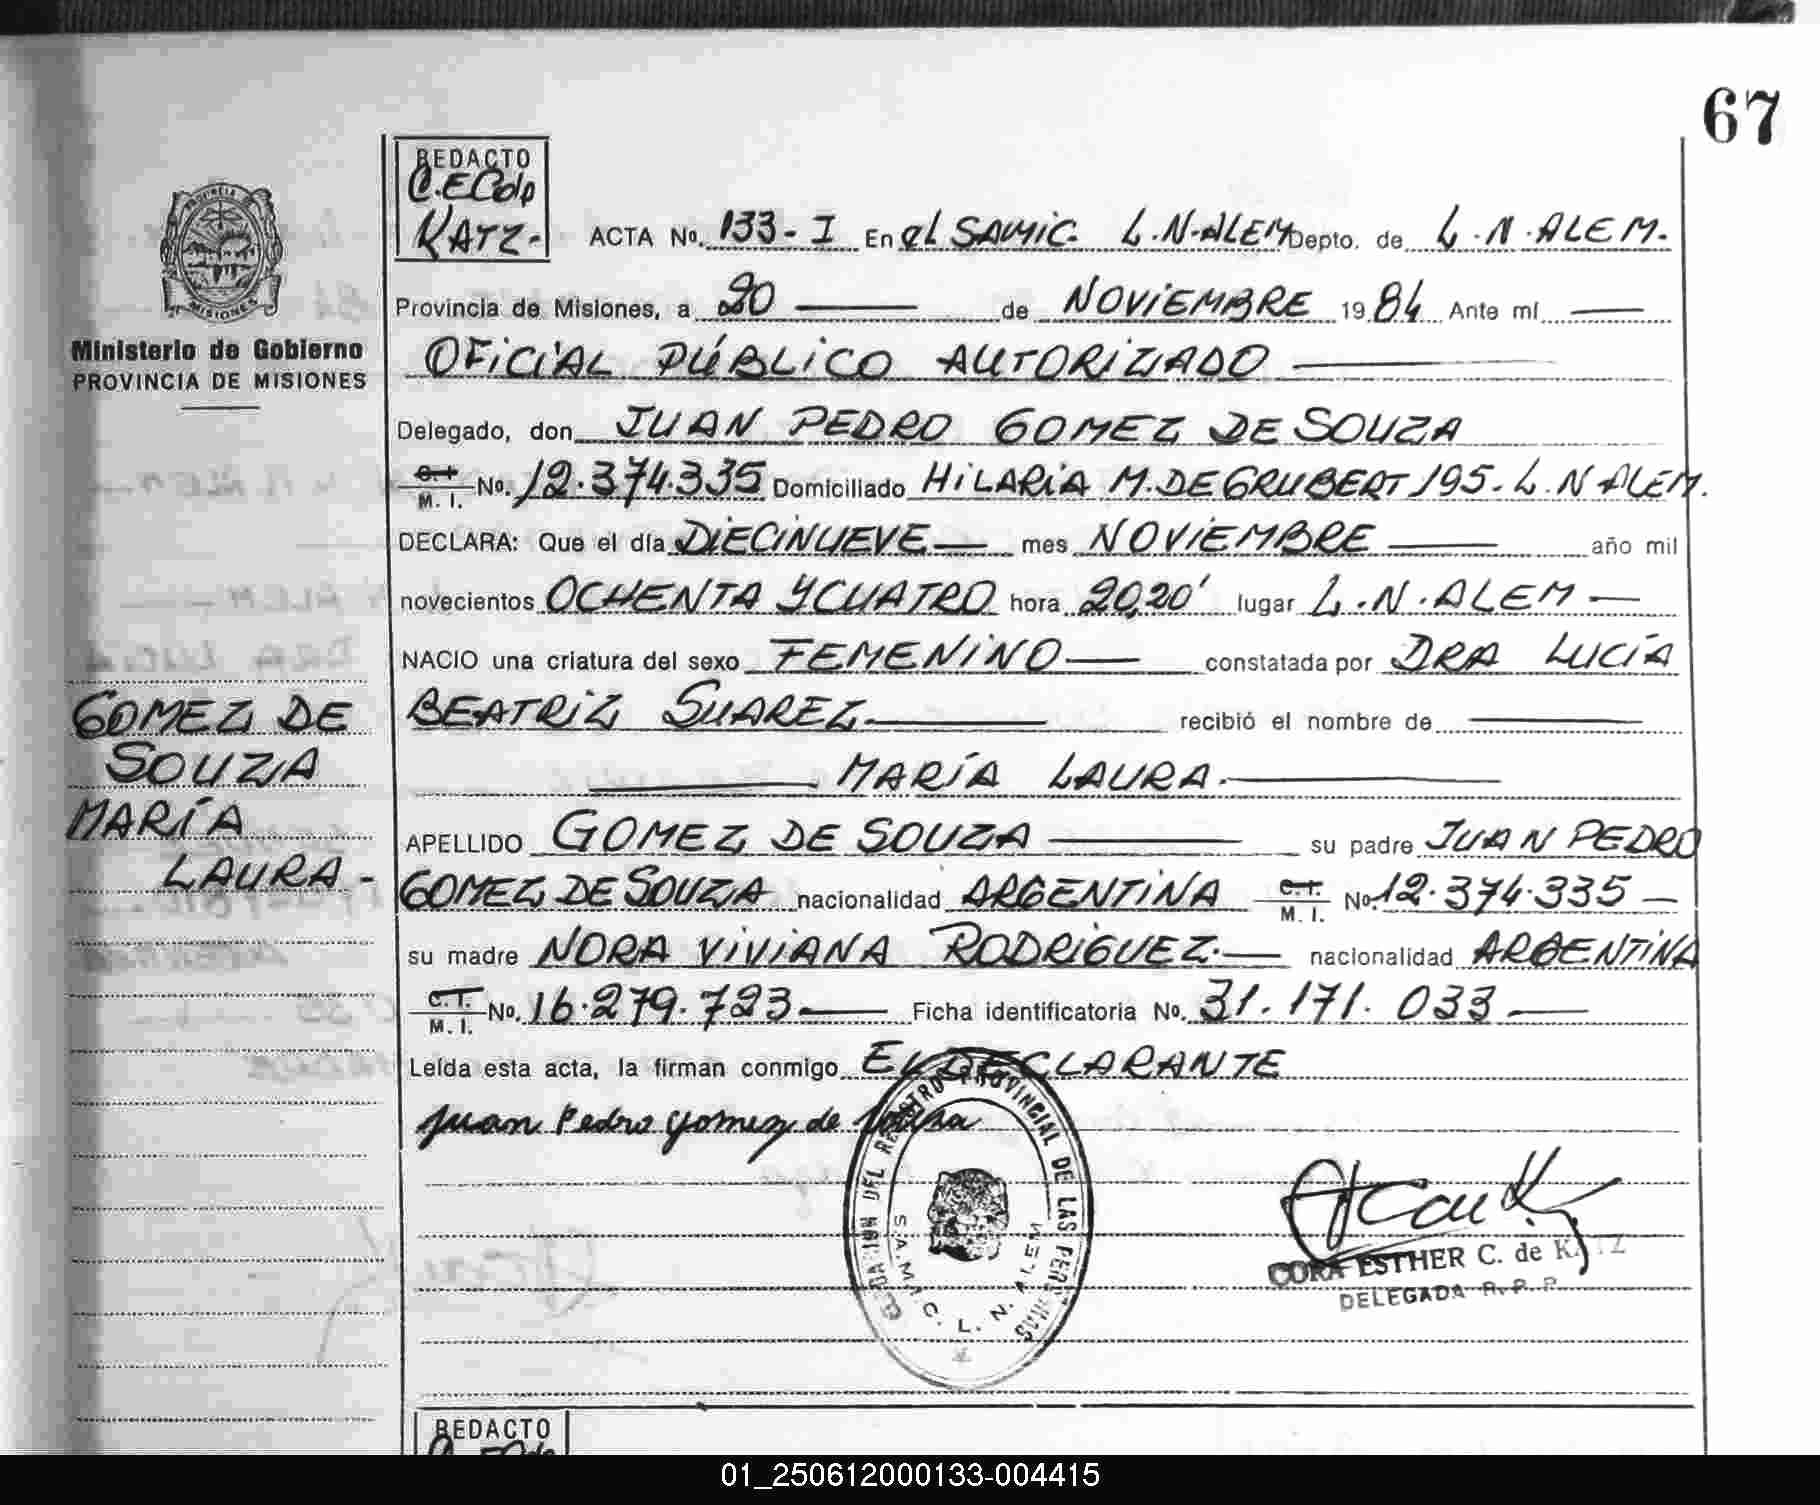 67
REDACTO
C.ECde
KATZ-
ACTA No. 133-I En el SAMIC. L.N.ALEM Depto. de L.N.ALEM.
PROVINCIA DE
MISIONES
Ministerio de Gobierno
PROVINCIA DE MISIONES
Provincia de Misiones, a 20 —— de NOVIEMBRE 1984 Ante mí ——
OFICIAL PÚBLICO AUTORIZADO ——
Delegado, don JUAN PEDRO GOMEZ DE SOUZA
C.I. / M. I. No. 12.374.335 Domiciliado HILARIA M. DE GRUBERT 195. L.N ALEM.
DECLARA: Que el día DIECINUEVE —— mes NOVIEMBRE —— año mil
novecientos OCHENTA Y CUATRO hora 20,20' lugar L.N.ALEM —
NACIO una criatura del sexo FEMENINO —— constatada por DRA LUCÍA
BEATRIZ SUAREZ —— recibió el nombre de ——
—— MARÍA LAURA. ——
GOMEZ DE
SOUZA
MARÍA
LAURA -
APELLIDO GOMEZ DE SOUZA —— su padre JUAN PEDRO
GOMEZ DE SOUZA nacionalidad ARGENTINA C.I. / M. I. No. 12.374.335 —
su madre NORA VIVIANA RODRIGUEZ. —— nacionalidad ARGENTINA
C.I. / M. I. No. 16.279.723 —— Ficha identificatoria No. 31.171.033 ——
Leída esta acta, la firman conmigo EL DECLARANTE
Juan Pedro Gomez de Souza
DEL REGISTRO PROVINCIAL DE LAS PERSONAS
S.A.M.I.C. L. N. ALEM
CORA ESTHER C. de KATZ
DELEGADA R. P. P.
REDACTO
01_250612000133-004415